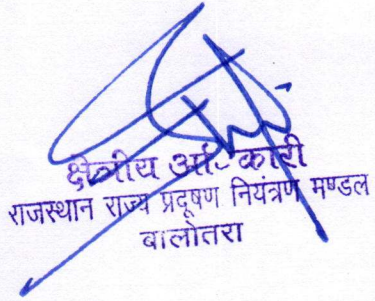 क्षेत्रीय अधिकारी
राजस्थान राज्य प्रदूषण नियंत्रण मण्डल
बालोतरा